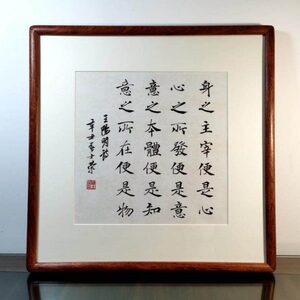 身之主宰便是心
心之所發便是意
意之本體便是知
意之所在便是物
王陽明詩